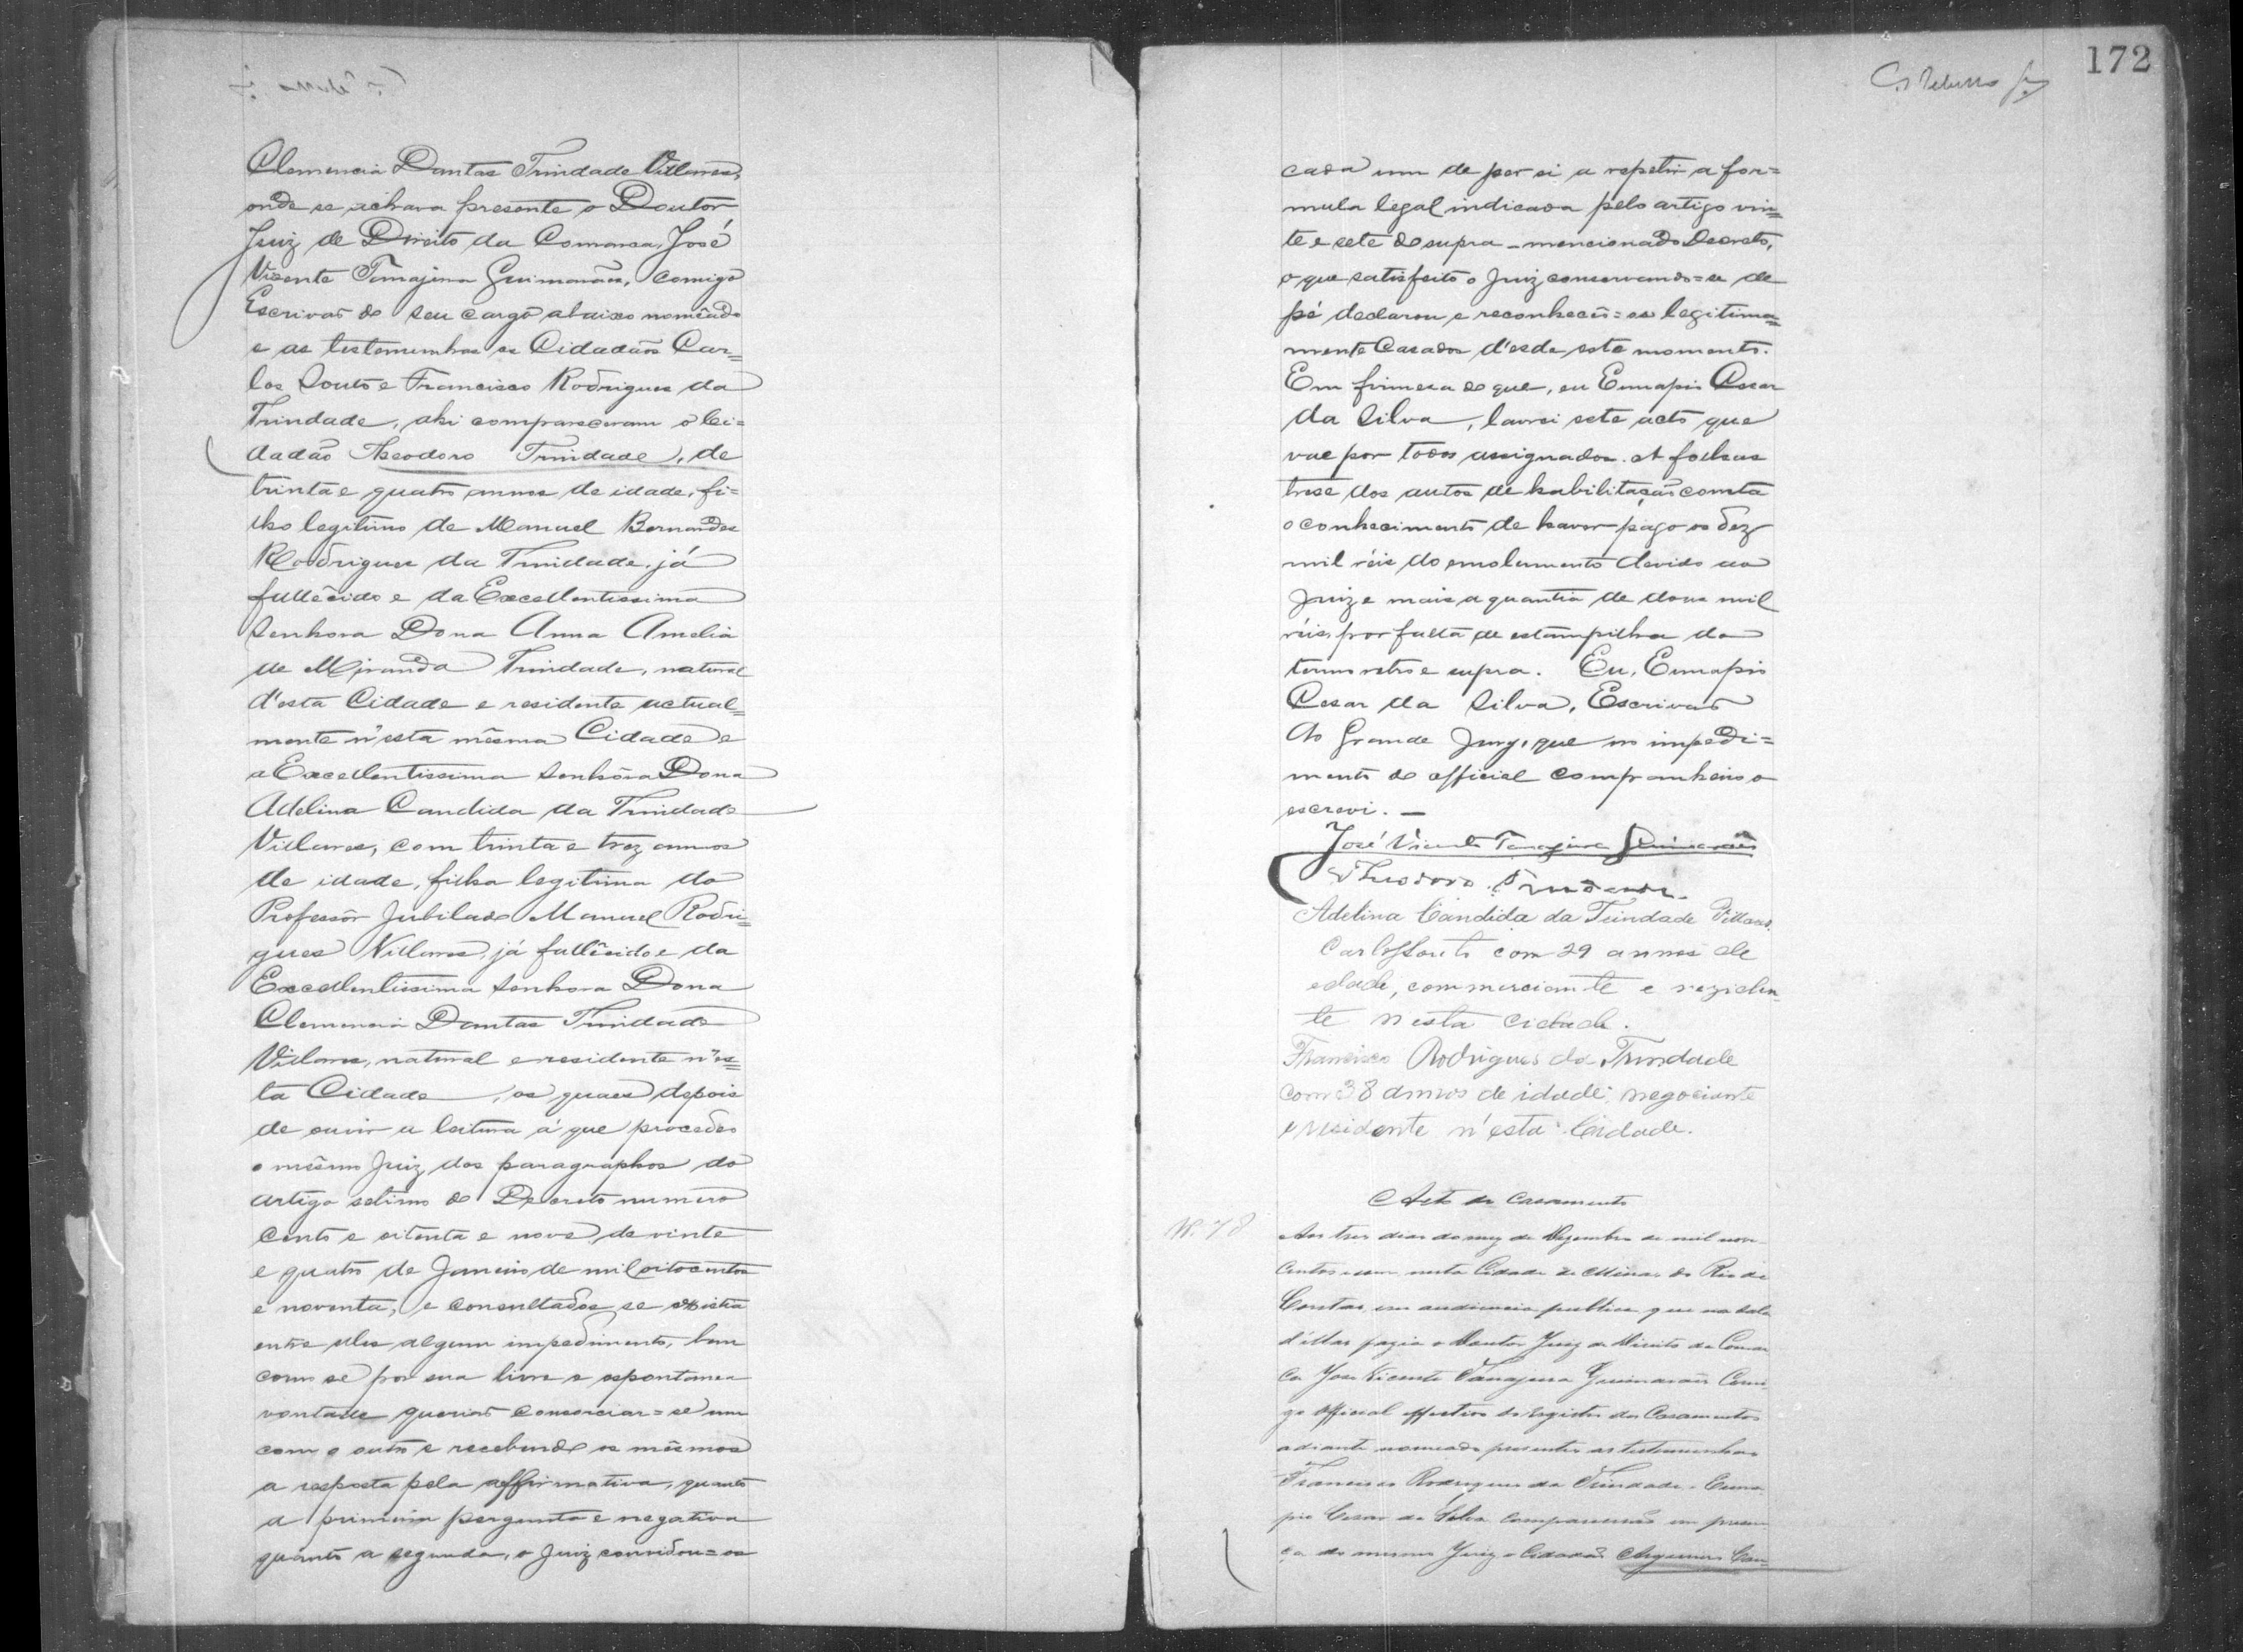 Clemencia Dantas Trindade Villares,
onde se achava presente o Doutor
Juiz de Direito da Comarca, José
Vicente Tanajura Guimarães, comigo
Escrivão do seu cargo abaixo nomeado
e as testemunhas os Cidadãos Car=
los Souto e Francisco Rodrigues da
Trindade, ahi compareceram o Ci=
dadão Theodoro Trindade, de
trinta e quatro annos de idade, fi=
lho legitimo de Manuel Bernardes
Rodrigues da Trindade, já
fallecido e da Excellentissima
Senhora Dona Anna Amelia
de Miranda Trindade, natural
d'esta Cidade e residente actual=
mente n'esta mesma Cidade e
a Excellentissima Senhora Dona
Adelina Candida da Trindade
Villares, com trinta e trez annos
de idade, filha legitima do
Professor Jubilado Manuel Rodri=
gues Villares, já fallecido e da
Excellentissima Senhora Dona
Clemencia Dantas Trindade
Villares, natural e residente n'es=
ta Cidade, os quaes depois
de ouvir a leitura á que procedeo
o mesmo Juiz dos paragraphos do
artigo setimo do Decreto numero
cento e oitenta e nove de vinte
e quatro de Janeiro de mil oitocentos
e noventa, e consultados se existia
entre elles algum impedimento, bem
como se por sua livre e espontanea
vontade querião consorciar=se um
com o outro e recebendo os mesmos
a resposta pela affirmativa, quanto
a primeira pergunta e negativa
quanto a segunda, o Juiz convidou=os
172
cada um de per si a repetir a for=
mula legal indicada pelo artigo vin=
te e sete do supra-mencionado Decreto,
o que satisfeito o Juiz conservando=se de
pé declarou e reconheceu=os legitima=
mente Casados d'esde este momento.
Em firmesa do que, eu Eunapio Cesar
da Silva, lavrei este acto que
vae por todos assignados. A folhas
trese dos autos de habilitação consta
o conhecimento de haver pago os dez
mil réis do emolumento devido ao
Juiz e mais a quantia de dous mil
réis, por falta de estampilha do
termo retro e supra. Eu, Eunapio
Cesar da Silva, Escrivão
do Grande Jury, que no impedi=
mento do official companheiro o
escrevi. —
José Vicente Tanajura Guimarães
Theodoro Trindade.
Adelina Candida da Trindade Villares.
Carlos Souto com 29 annos de
edade, commerciante e reziden
te nesta cidade.
Francisco Rodrigues da Trindade
com 38 annos de idade, negociante
e residente n'esta Cidade.
Acto de Casamento
N. 78
Aos tres dias do mez de Dezembro de mil nove
centos e um nesta Cidade de Minas do Rio de
Contas em audiencia publica que na sala
d'ellas fazia o Doutor Juiz de Direito da Comar
ca José Vicente Tanajura Guimarães Comi
go official effectivo do registro dos Casamentos
adiante nomeado presentes as testemunhas
Francisco Rodrigues da Trindade e Euna
pio Cesar da Silva Comparecerão em presen
ça do mesmo Juiz o Cidadão